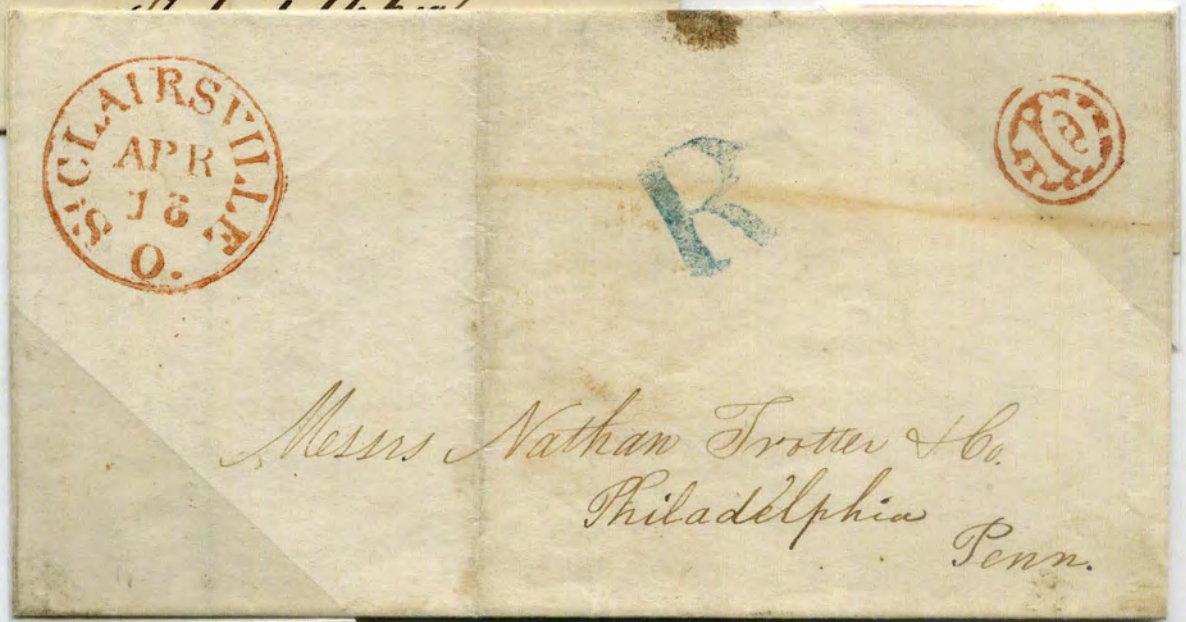 St CLAIRSVILLE O.
APR
10
R
Messrs Nathan Trotter & Co.
Philadelphia
Penn.